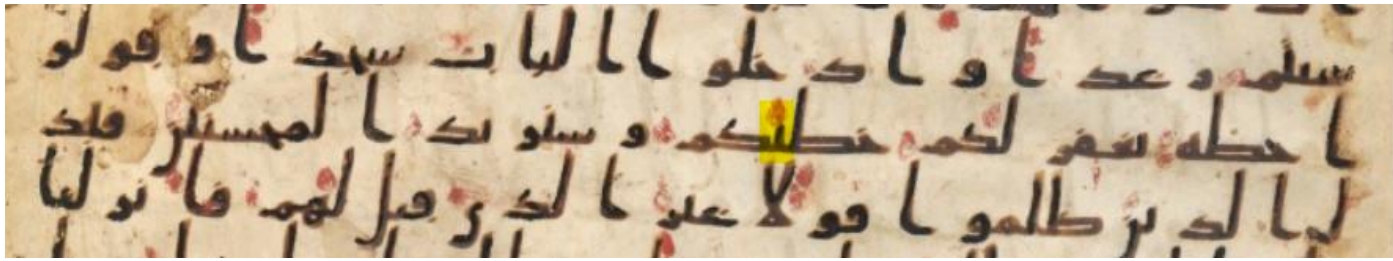 شئتم رغدا وادخلوا الباب سجدا وقولو
ا حطه نغفر لكم خطيكم وسنزيد المحسنين فبد
ل الذين ظلموا قولا غير الذي قيل لهم فانزلنا